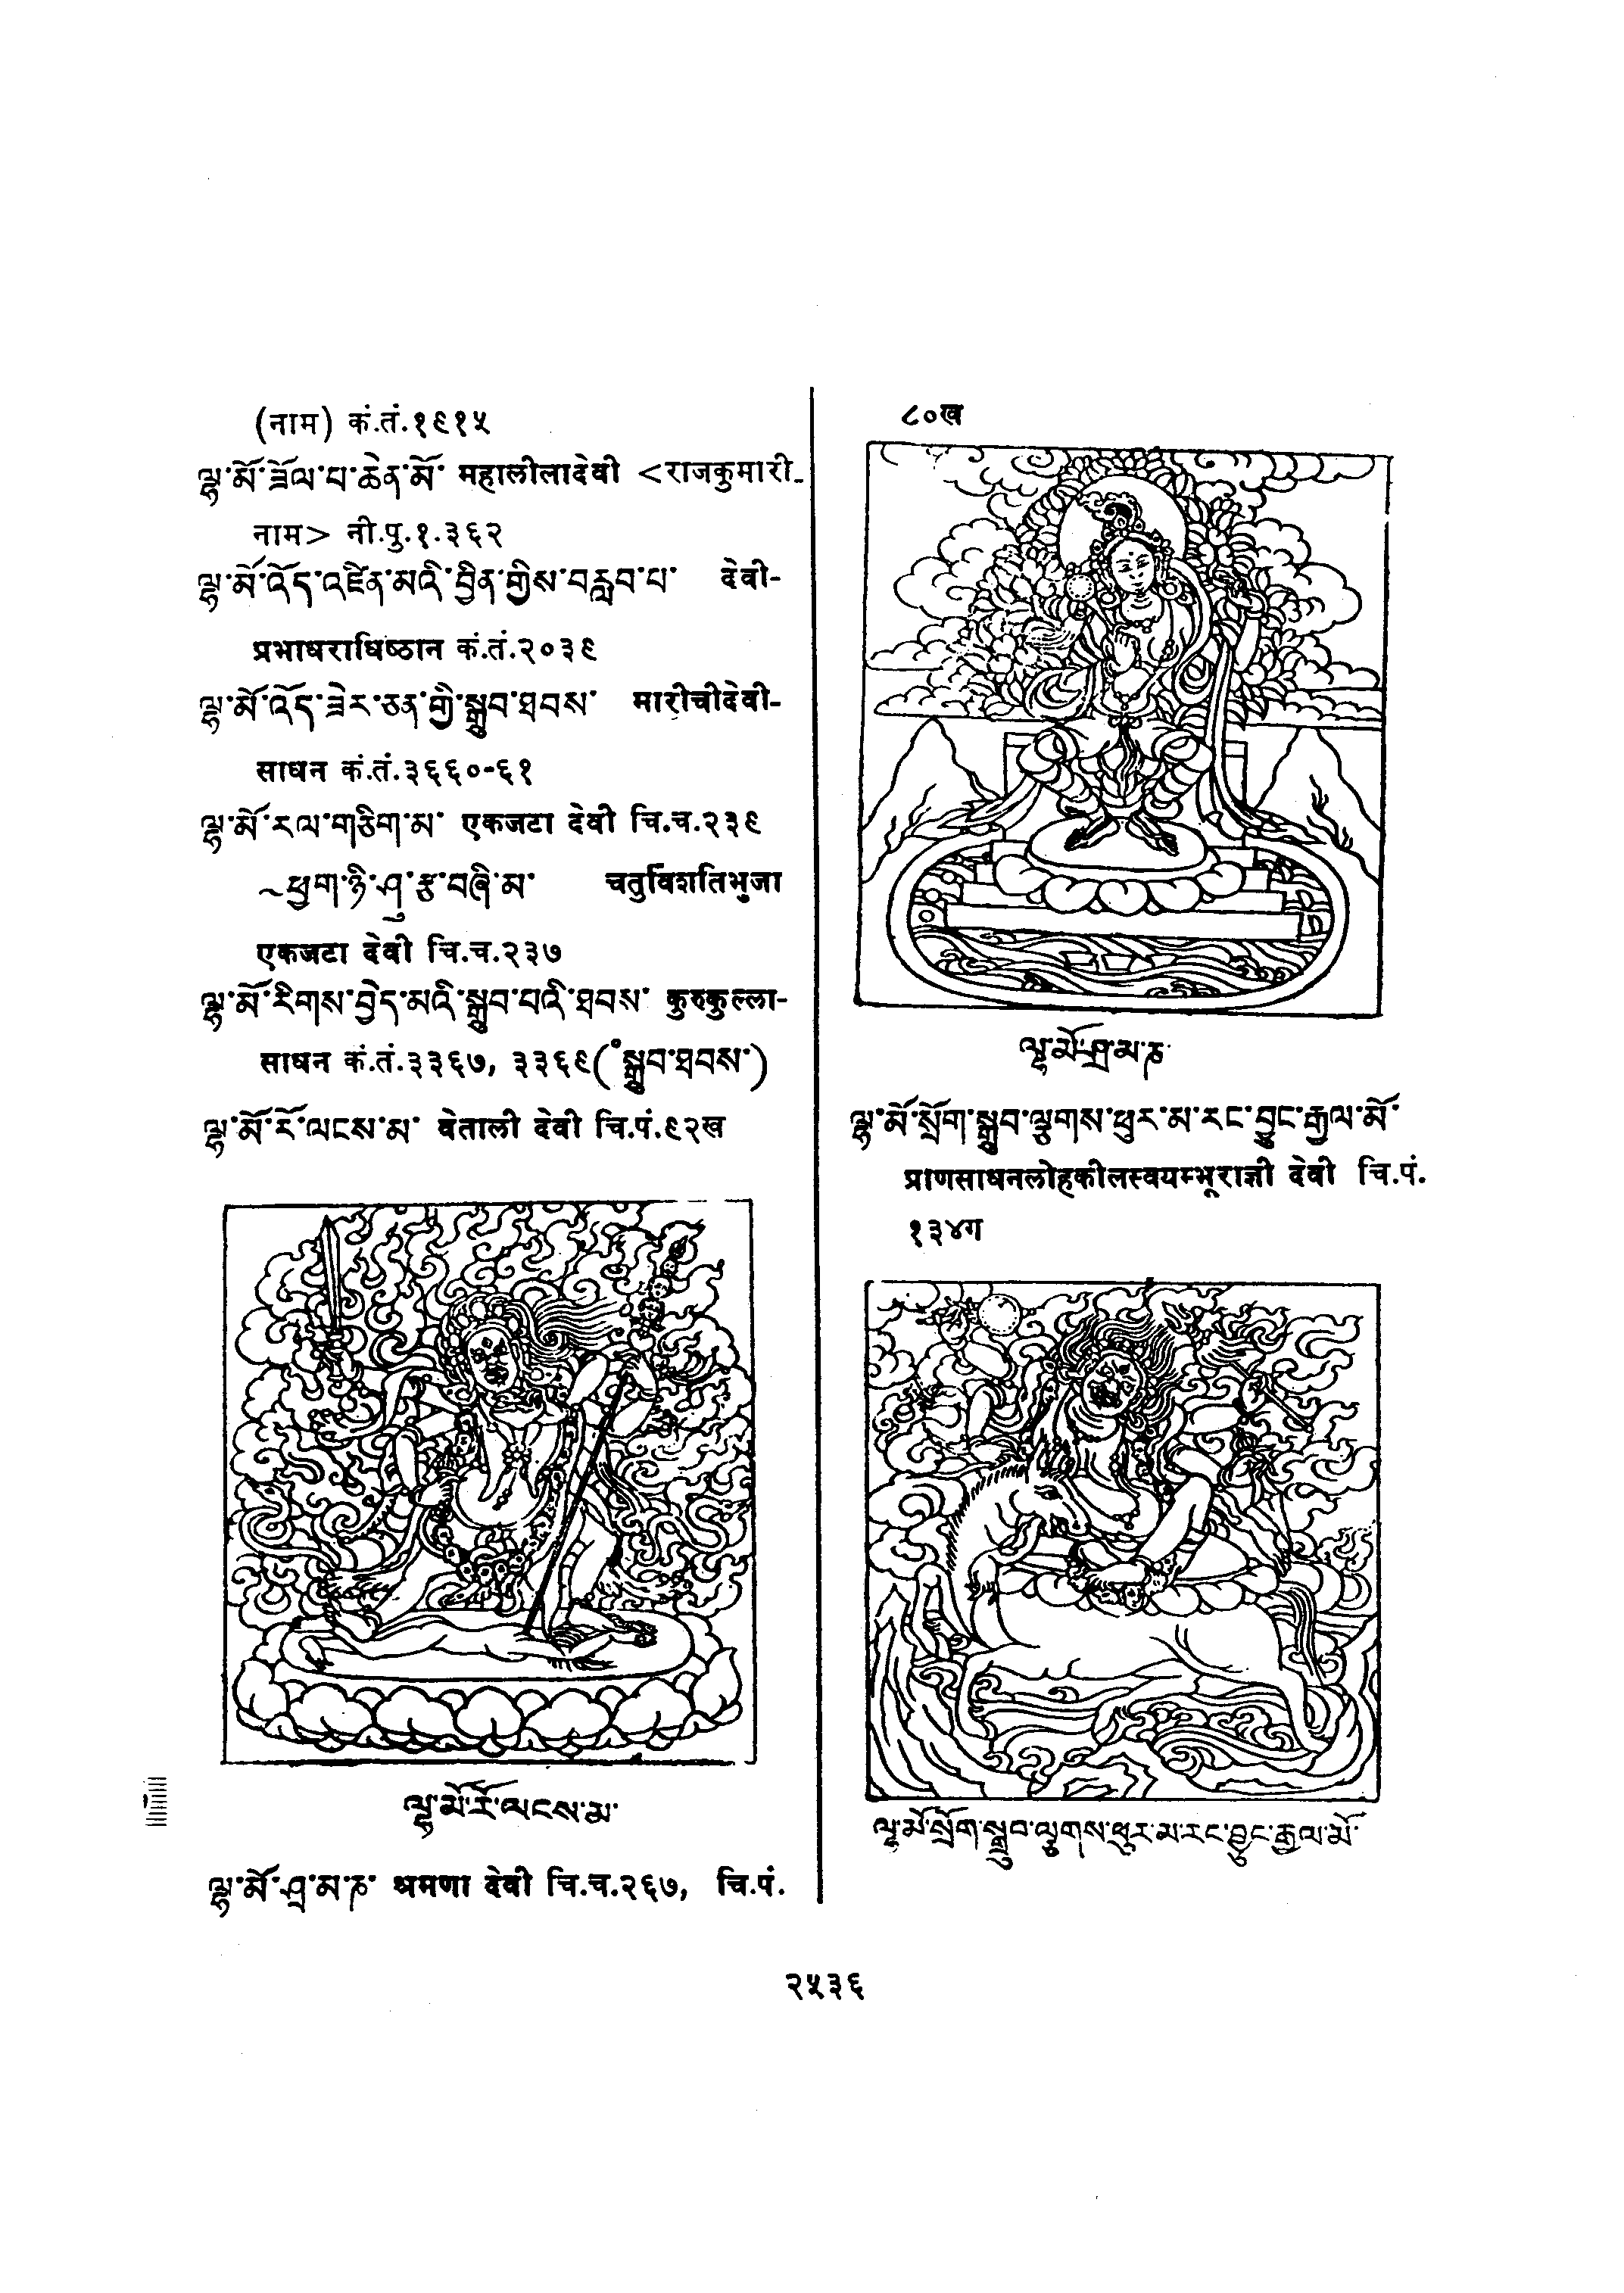 (नाम) कं.तं.१९१५
ལྷ་མོ་ཟོལ་པ་ཆེན་མོ་ महालीलादेवी <राजकुमारी-
नाम> नी.पु.१.३६२
ལྷ་མོ་འོད་འཛིན་མའི་བྱིན་གྱིས་བརླབ་པ་ देवी-
प्रभाधराधिष्ठान कं.तं.२०३९
ལྷ་མོ་འོད་ཟེར་ཅན་གྱི་སྒྲུབ་ཐབས་ मारीचीदेवी-
साधन कं.तं.३६६०-६१
ལྷ་མོ་རལ་གཅིག་མ་ एकजटा देवी चि.च.२३९
~ཕྱག་ཉི་ཤུ་རྩ་བཞི་མ་ चतुर्विंशतिभुजा
एकजटा देवी चि.च.२३७
ལྷ་མོ་རིགས་བྱེད་མའི་སྒྲུབ་པའི་ཐབས་ कुरुकुल्ला-
साधन कं.तं.३३६७, ३३६९(°སྒྲུབ་ཐབས་)
ལྷ་མོ་རོ་ལངས་མ་ वेताली देवी चि.पं.९२ख
ལྷ་མོ་རོ་ལངས་མ་
ལྷ་མོ་ཤྲ་མ་ཎ་ श्रमणा देवी चि.च.२६७, चि.पं.
८०ख
ལྷ་མོ་ཤྲ་མ་ཎ་
ལྷ་མོ་སྲོག་སྒྲུབ་ལྕགས་ཕུར་མ་རང་བྱུང་རྒྱལ་མོ་
प्राणसाधनलोहकीलस्वयम्भूराज्ञी देवी चि.पं.
१३४ग
ལྷ་མོ་སྲོག་སྒྲུབ་ལྕགས་ཕུར་མ་རང་བྱུང་རྒྱལ་མོ་
२५३६